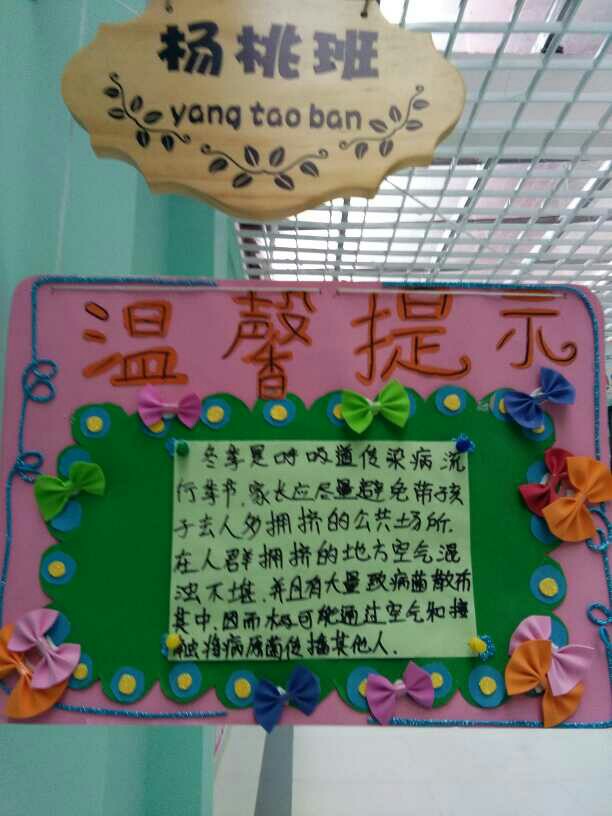 杨桃班
yang tao ban
温馨提示
冬季是呼吸道传染病流
行季节.家长应尽量避免带孩
子去人多拥挤的公共场所.
在人群拥挤的地方空气混
浊不堪.并且有大量致病菌散布
其中.因而极可能通过空气和接
触将病原菌传播其他人.